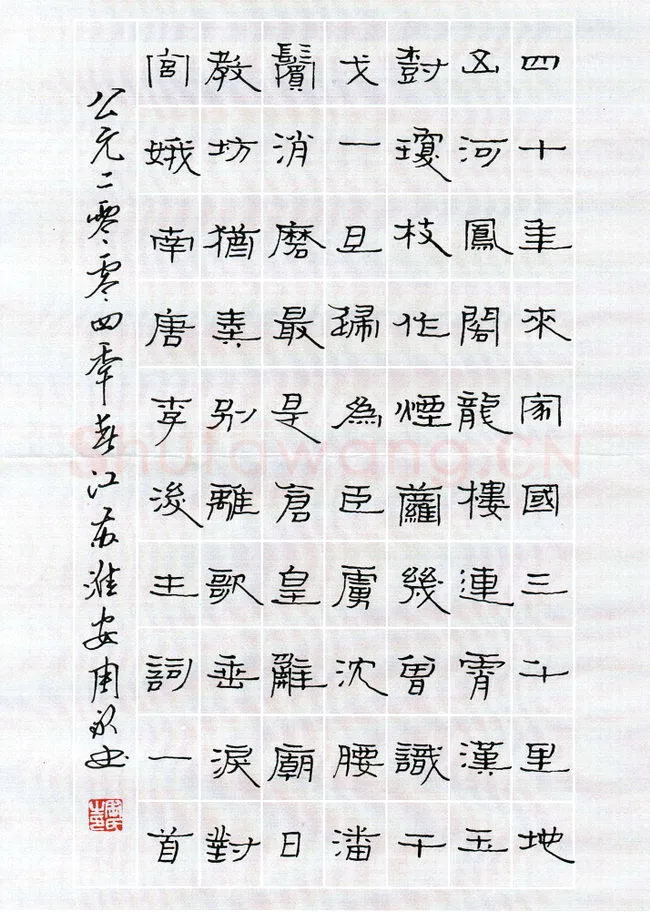 四十年來家國三千里地
山河鳳閣龍樓連霄漢玉
樹瓊枝作煙蘿幾曾識干
戈一旦歸為臣虜沈腰潘
鬢消磨最是倉皇辭廟日
教坊猶奏別離歌垂淚對
宮娥南唐李後主詞一首
公元二零零四年春江蘇淮安周书
Shufawang.CN